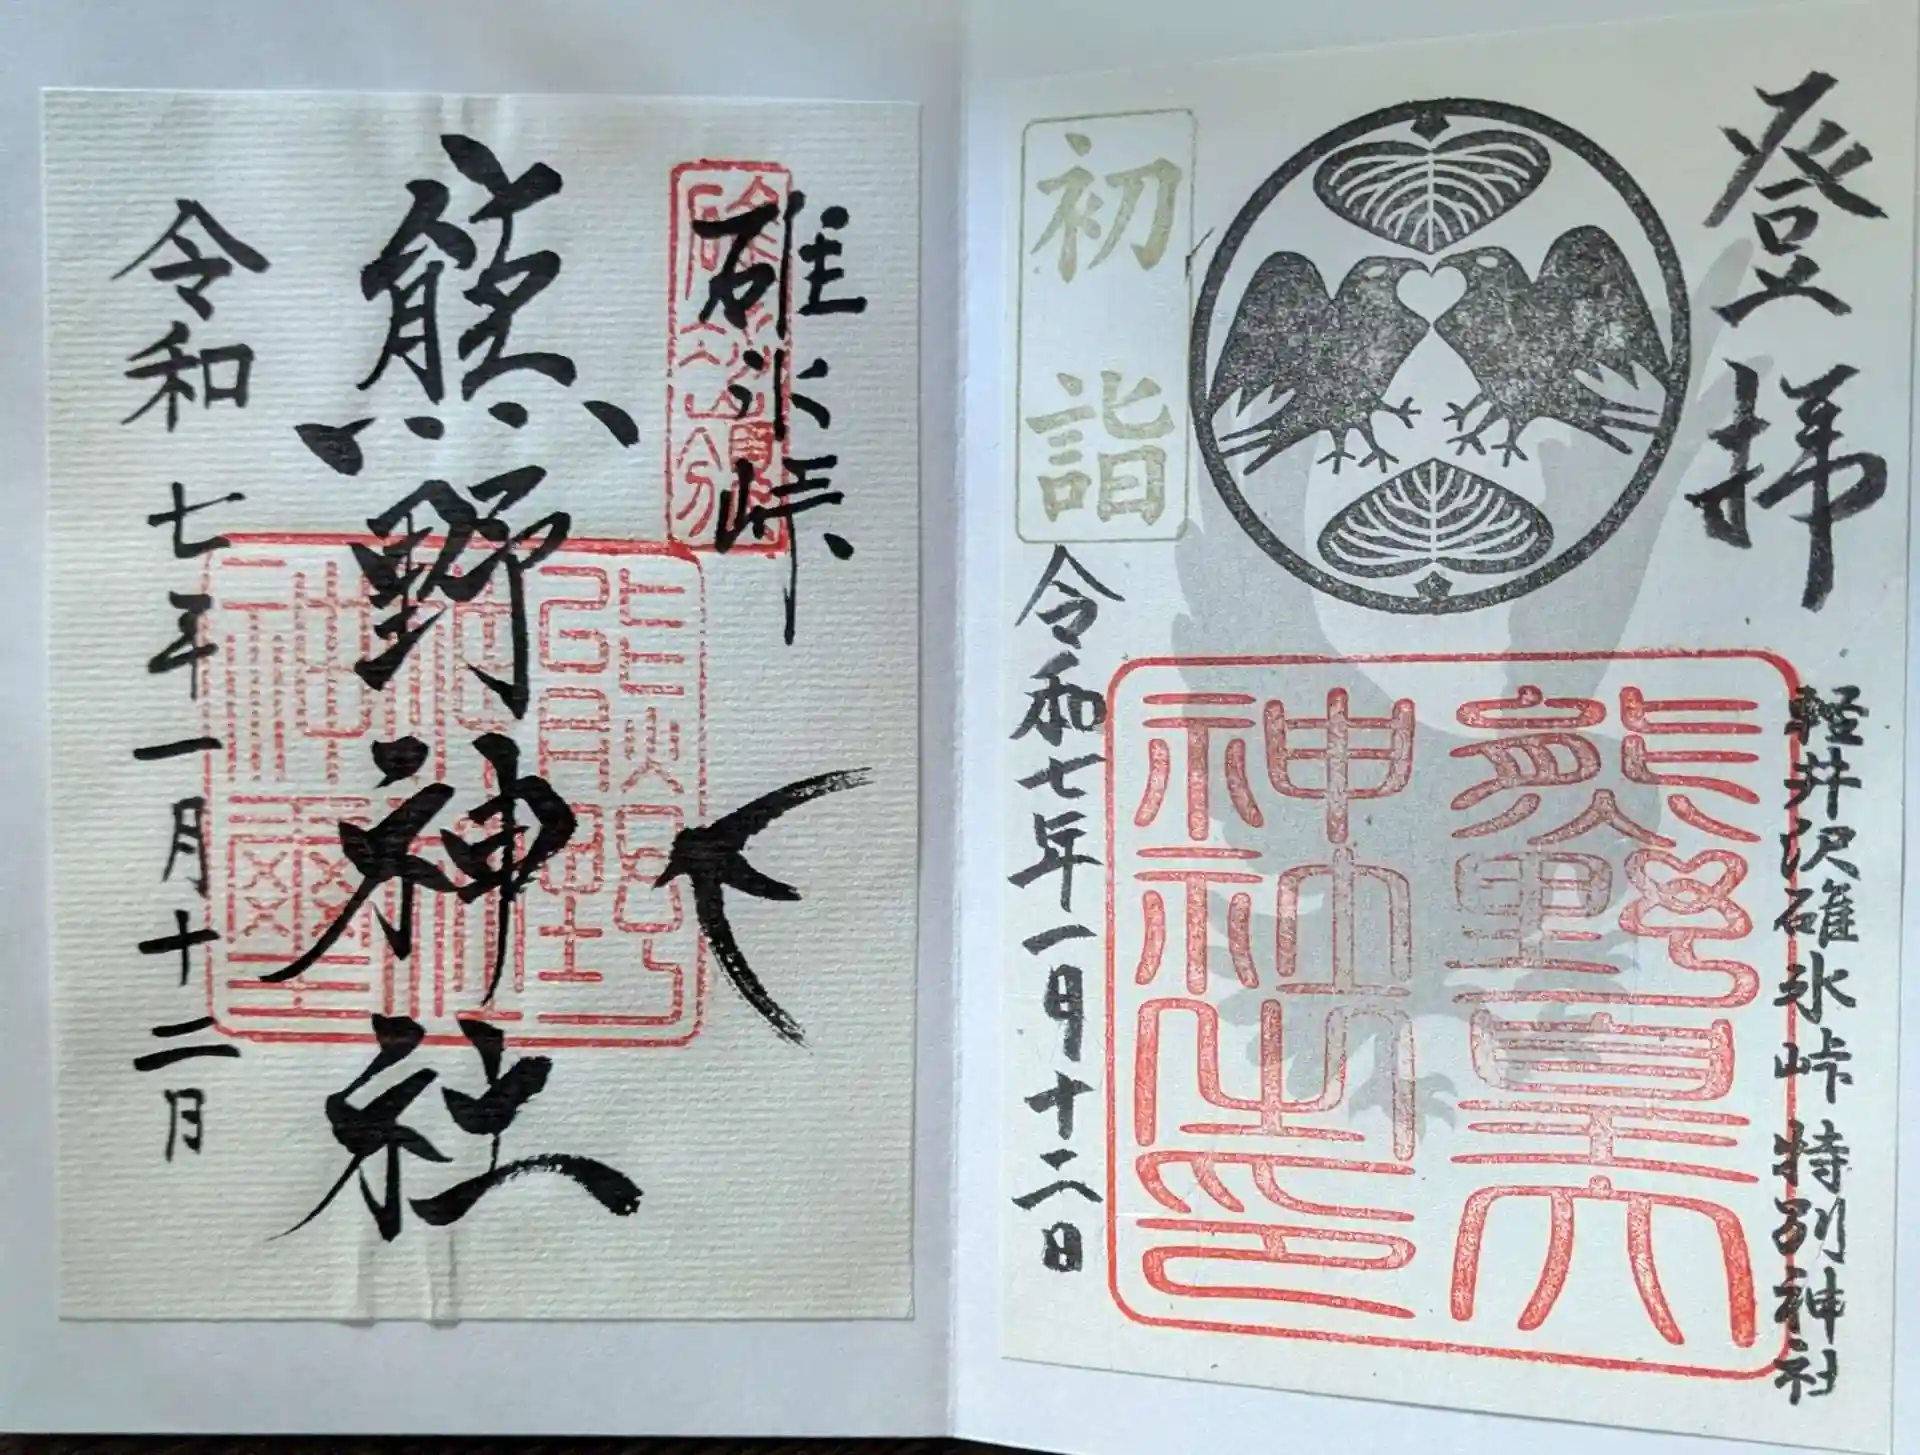 登拝
軽井沢碓氷峠特別神社
熊野皇大
神社之印
初詣
令和七年一月十二日
碓氷峠
熊野神社
令和七年一月十二月